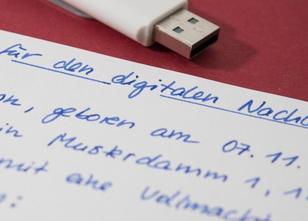 für den digitalen Nachl
on, geboren am 07. 11.
in Musterdamm 1, 1
mit eine Vollmacht